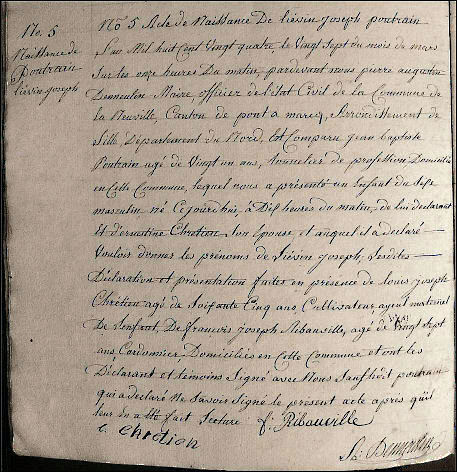 No. 5
Naissance de
Poutrain
Liévin joseph
No 5 Acte de Naissance De liévin joseph poutrain
L'an Mil huit Cent Vingt quatre, le Vingt Sept du mois de mars
Sur les onze heures Du matin, pardevant nous pierre augustin
Maire, officier de l'état Civil de la Commune de
la Neuville, Canton de pont a marcq, Arrondissement de
Lille, Département du Nord, Est Comparu jean baptiste
Poutrain agé de Vingt un ans, de profession Domicilié
en Cette Commune, lequel nous a présenté un Enfant du Sexe
masculin né Cejourdhui, à Dix heures du matin, de lui déclarant
Et d'ernestine Chrétien Son Epouse et auquel il a déclaré
Vouloir donner les prénoms de Liévin joseph, Lesdites
Déclaration et présentation faites en présence de louis joseph
Chrétien agé de Soixante Cinq ans Cultivateur, ayeul maternel
De l'enfant, De françois joseph Ribauville, agé de Vingt sept
ans Cordonnier, Domiciliés en Cette Commune et ont les
Déclarant et témoins Signé avec Nous Sauf ledit poutrain
qui a declaré Ne Savoir Signé le présent acte apres qu'il
leur en a été fait lecture f. Ribauville
Chrétien